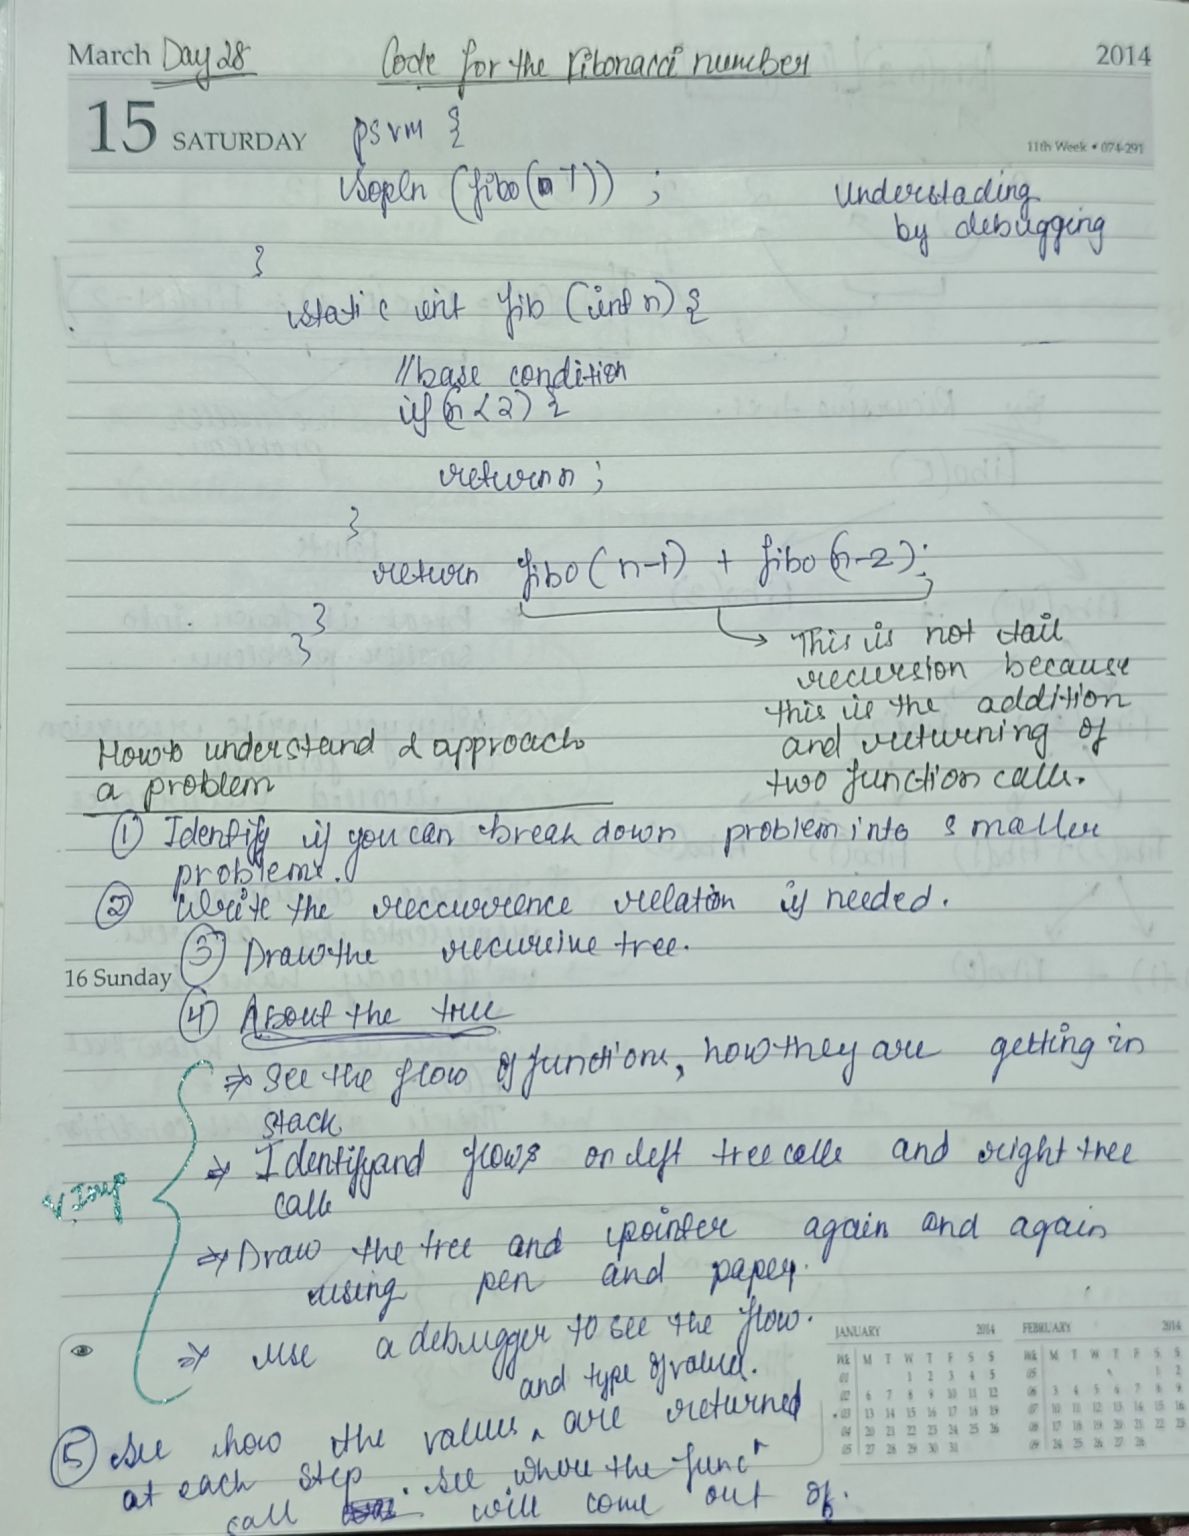 March Day 28 Code for the Fibonacci number 2014
15 SATURDAY psvm {
11th Week • 074-291
sopln (fibo(7)) ;
Understading
by debugging
}
static int fib (int n) {
//base condition
if (n < 2) {
return n ;
}
return fibo(n-1) + fibo(n-2);
}
}
This is not tail
recursion because
this is the addition
and returning of
two function calls.
How to understand & approach
a problem
① Identify if you can break down problem into smaller
problems.
② Write the reccurrence relation if needed.
③ Draw the recursive tree.
16 Sunday
④ About the tree
⇒ See the flow of functions, how they are getting in
stack
⇒ Identify and flows on left tree calls and right tree
calls
⇒ Draw the tree and pointer again and again
using pen and paper.
⇒ use a debugger to see the flow.
and type of value.
V Imp
⑤ See how the values are returned
at each step. See where the funcⁿ
call will come out of.
JANUARY 2014
WK M T W T F S S
01 1 2 3 4 5
02 6 7 8 9 10 11 12
03 13 14 15 16 17 18 19
04 20 21 22 23 24 25 26
05 27 28 29 30 31
FEBRUARY 2014
WK M T W T F S S
05 1 2
06 3 4 5 6 7 8 9
07 10 11 12 13 14 15 16
08 17 18 19 20 21 22 23
09 24 25 26 27 28